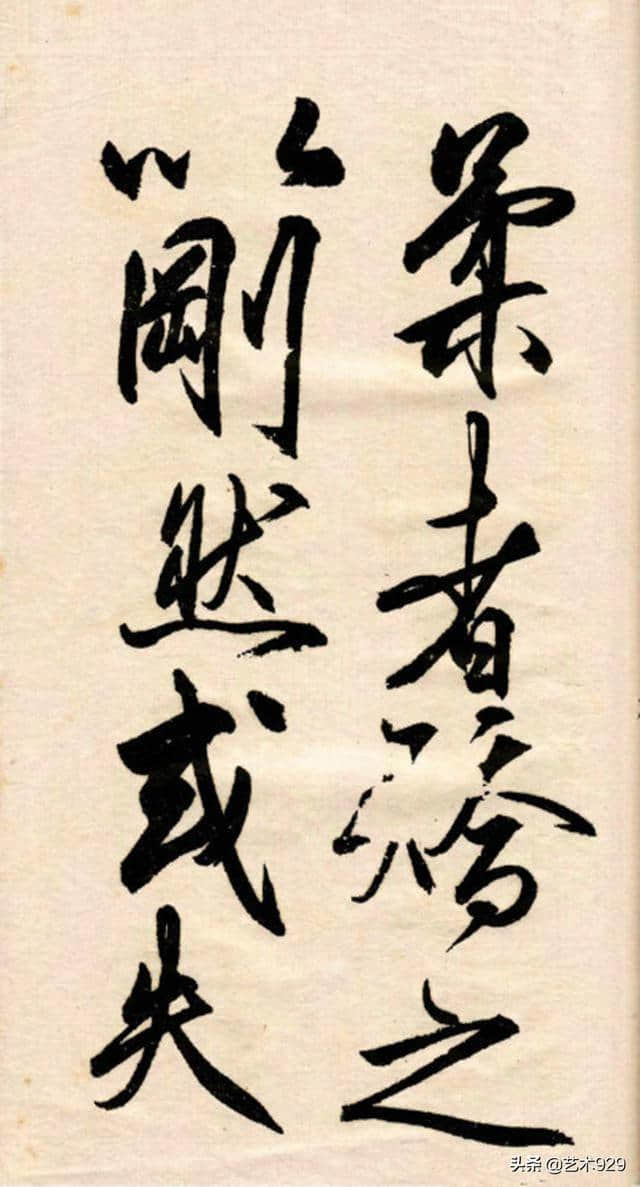 柔者矯之
以剛然或失
头条 @艺术929